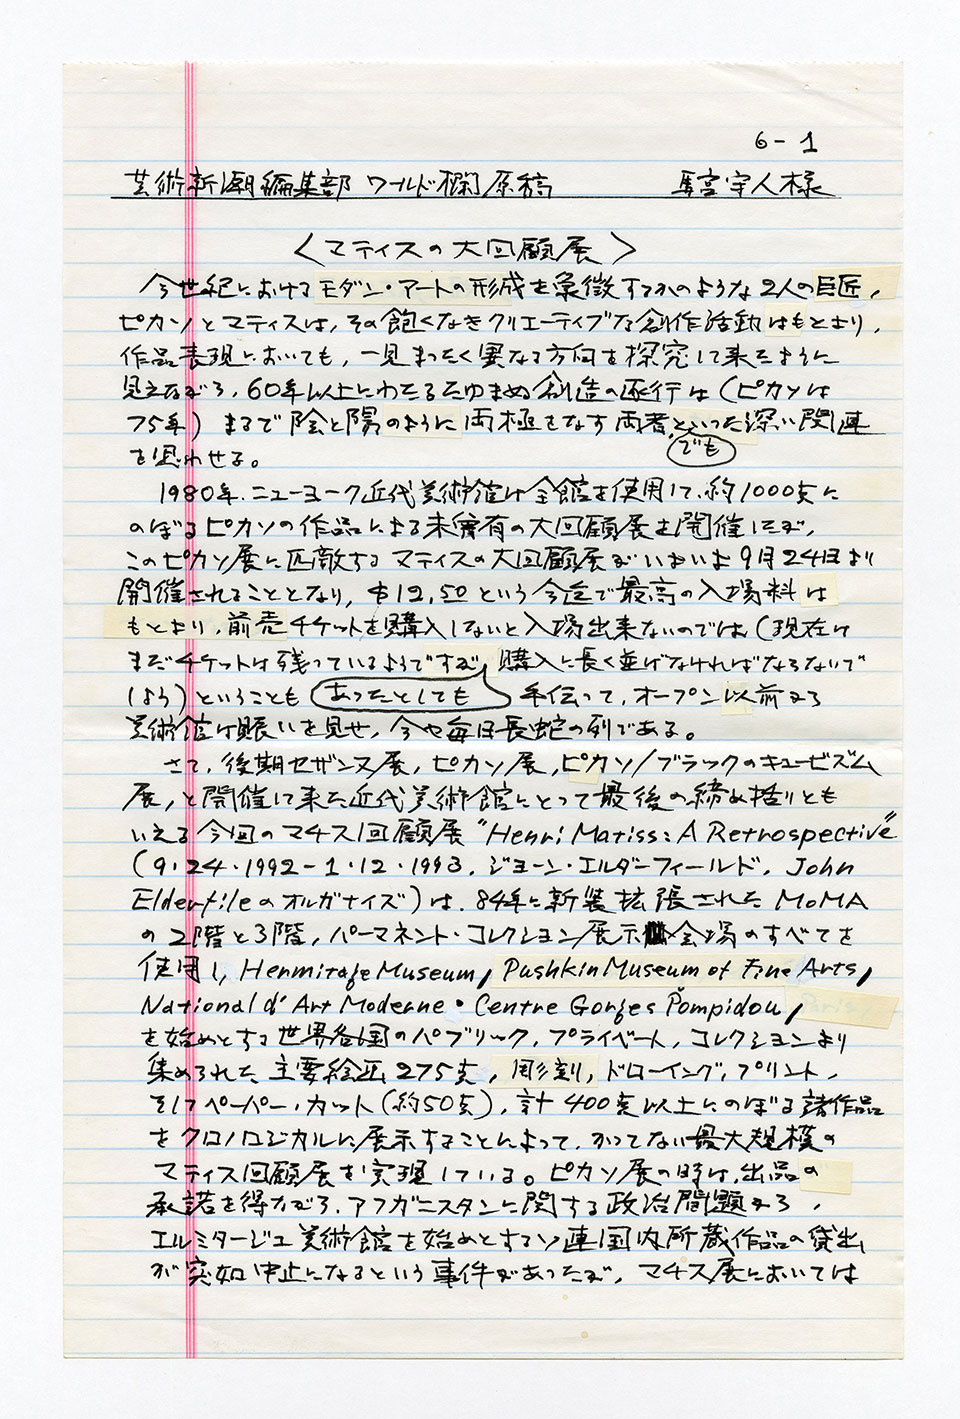 6-1
芸術新潮編集部 ワールド欄原稿 馬宮宇人様
〈マティスの大回顧展〉
今世紀におけるモダン・アートの形成を象徴するかのような2人の巨匠,
ピカソとマティスは,その飽くなきクリエーティブな創作活動はもとより,
作品表現においても,一見まったく異なる方向を探究して来たように
見えながら,60年以上にわたるたゆまぬ創造の遂行は(ピカソは
75年)まるで陰と陽のように両極をなす両者といった深い関連
でも
を思わせる。
1980年,ニューヨーク近代美術館は全館を使用して,約1000点に
のぼるピカソの作品による未曾有の大回顧展を開催したが,
このピカソ展に匹敵するマティスの大回顧展がいよいよ9月24日より
開催されることとなり,$12,50という今迄で最高の入場料は
もとより,前売チケットを購入しないと入場出来ないのでは(現在は
まだチケットは残っているようですが 購入に長く並ばなければならないで
しょう)ということも あったとしても 手伝って,オープン以前から
美術館は賑いを見せ,今や毎日長蛇の列である。
さて,後期セザンヌ展,ピカソ展,ピカソ/ブラックのキュービズム
展,と開催して来た近代美術館にとって最後の締め括りとも
いえる今回のマチス回顧展"Henri Matiss: A Retrospective"
(9・24・1992-1・12・1993,ジョーン・エルダーフィールド, John
Elderfileのオルガナイズ)は,84年に新装拡張されたMoMA
の2階と3階,パーマネント・コレクション展示会場のすべてを
使用し,Henmitage Museum, Pushkin Museum of Fine Arts,
National d' Art Moderne・Centre Gorges Pompidou,
を始めとする世界各国のパブリック,プライベート,コレクションより
集められた主要絵画275点,彫刻,ドローイング,プリント,
そしてペーパー・カット(約50点),計400点以上にのぼる諸作品
をクロノロジカルに展示することによって,かつてない最大規模の
マティス回顧展を実現している。ピカソ展の時は,出品の
承諾を得ながら,アフガニスタンに関する政治問題から,
エルミタージュ美術館を始めとするソ連国内所蔵作品の貸出
が突如中止になるという事件があったが,マチス展においては